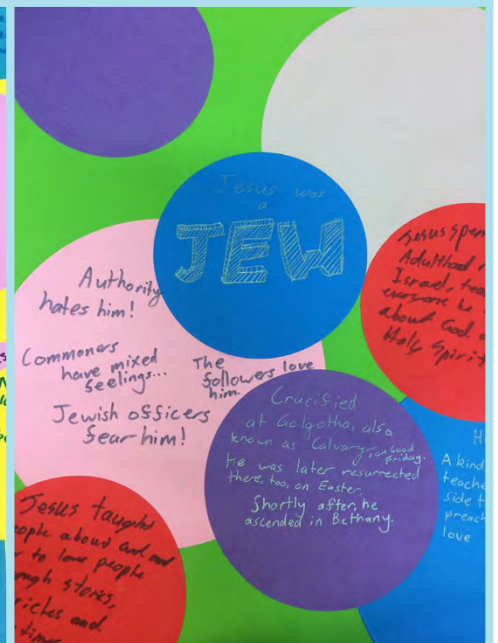 Jesus was
a
JEW
Authority
hates him!
Commoners
have mixed
feelings...
The
followers love
him.
Jewish officers
fear him!
Jesus spen
Adulthood
Israel, tea
everyone he
about God
Holy Spirit
Crucified
at Golgotha, also
known as Calvary, on Good
Friday.
He was later resurrected
there, too, on Easter.
Shortly after, he
ascended in Bethany.
H
A kind
teache
side t
preach
love
Jesus taught
eople about God and
to love people
ough stories,
and
time